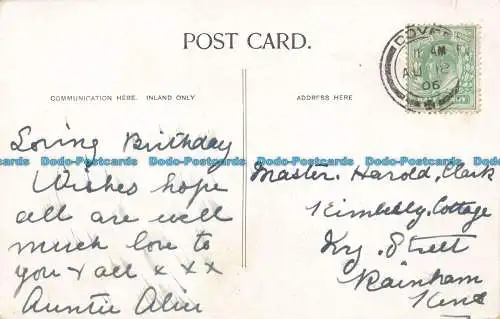 POST CARD.
COMMUNICATION HERE. INLAND ONLY.
ADDRESS HERE
DOVER
AM
AU 12
06
Loving Birthday
Wishes hope
all are well
much love to
you & all x x x
Auntie Alice
Master. Harold. Clark
Kimberly. Cottage
Ivy. Street
Rainham
Kent
Dodo-Postcards Dodo-Postcards Dodo-Postcards Dodo-Postcards
Dodo-Postcards Dodo-Postcards Dodo-Postcards Dodo-Postcards
Dodo-Postcards Dodo-Postcards Dodo-Postcards Dodo-Postcards